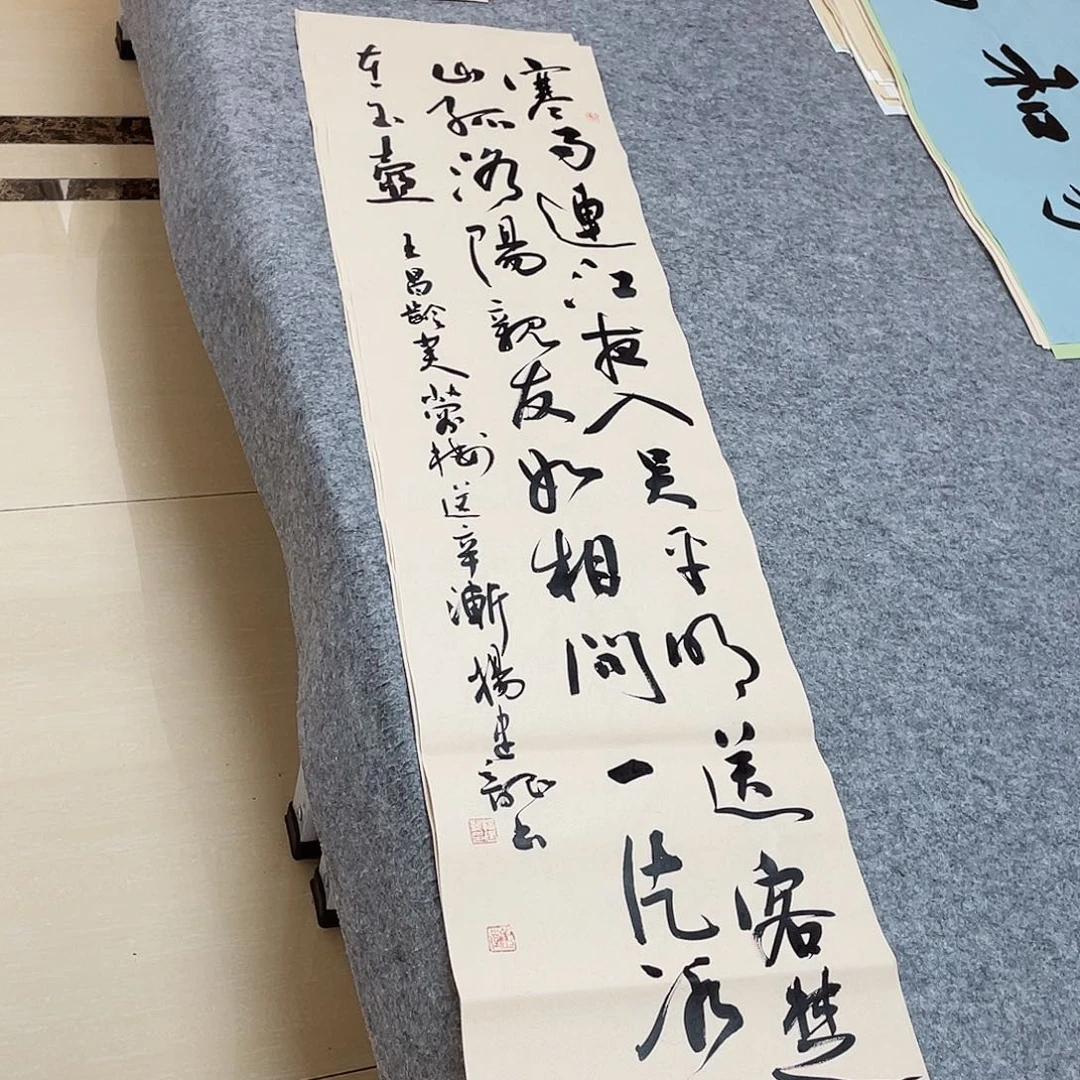 寒雨連江夜入吳平明送客楚
山孤洛陽親友如相問一片冰
在玉壺
王昌齡芙蓉樓送辛漸 楊建龍書
和